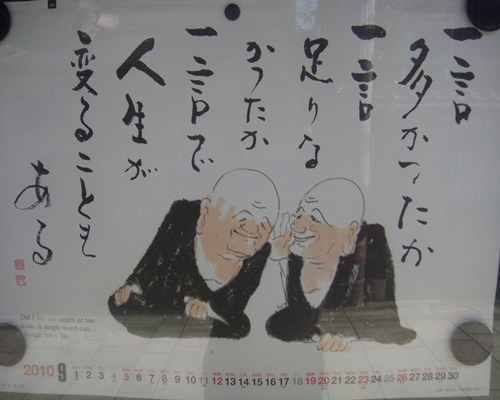 一言
多かったか
一言
足りな
かったか
一言で
人生が
変ることも
ある
Did I say too much or too
little. A single word can
change one's life.
2010 9 1 2 3 4 5 6 7 8 9 10 11 12 13 14 15 16 17 18 19 20 21 22 23 24 25 26 27 28 29 30